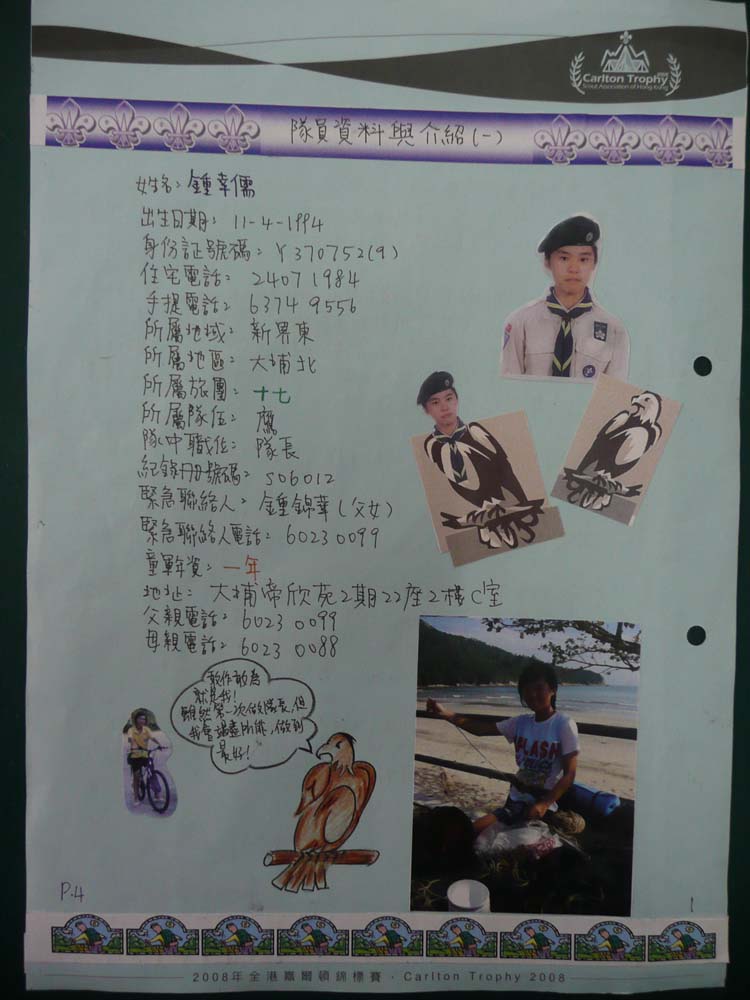 Carlton Trophy
Scout Association of Hong Kong
隊員資料與介紹(一)
姓名: 鍾幸儒
出生日期: 11-4-1994
身份証號碼: Y370752(9)
住宅電話: 2407 1984
手提電話: 6374 9556
所屬地域: 新界東
所屬地區: 大埔北
所屬旅團: 十七
所屬隊伍: 鷹
隊中職位: 隊長
紀錄冊號碼: S06012
緊急聯絡人: 鍾錦華(父女)
緊急聯絡人電話: 6023 0099
童軍年資: 一年
地址: 大埔帝欣苑2期22座2樓C室
父親電話: 6023 0099
母親電話: 6023 0088
敢作敢為
就是我!
雖然第一次做隊長,但
我會竭盡所能,做到
最好!
SPLASH
P.4
1
2008年全港嘉爾頓錦標賽 · Carlton Trophy 2008